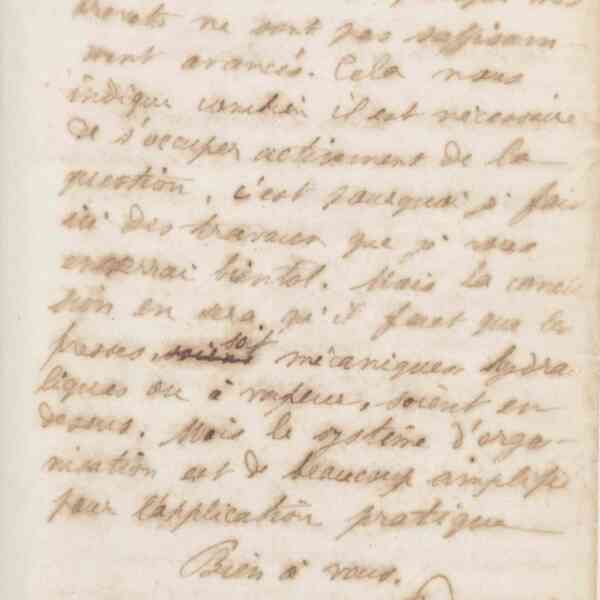 ne sont pas suffisam
ment avancés. Cela nous
indique combien il est nécessaire
de s'occuper activement de la
question, c'est pourquoi je fais
ici des travaux que je vous
enverrai bientot. Mais la conclu
sion en sera qu'il faut que les
presses, soit mécaniques hydrau
liques ou à vapeur, soient en
dessus. Mais le système d'orga-
nisation est de beaucoup simplifié
pour l'application pratique
Bien à vous.